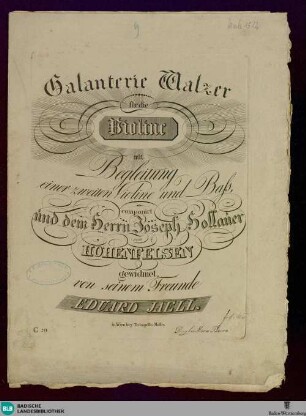 Galanterie Walzer
für die
Violine
mit
Begleitung
einer zweiten Violine und Baß,
componirt
und dem Herrn Joseph Hollauer
HÖHENFELSEN
gewidmet
von seinem Freunde
EDUARD JAELL.
BLB BADISCHE
LANDESBIBLIOTHEK